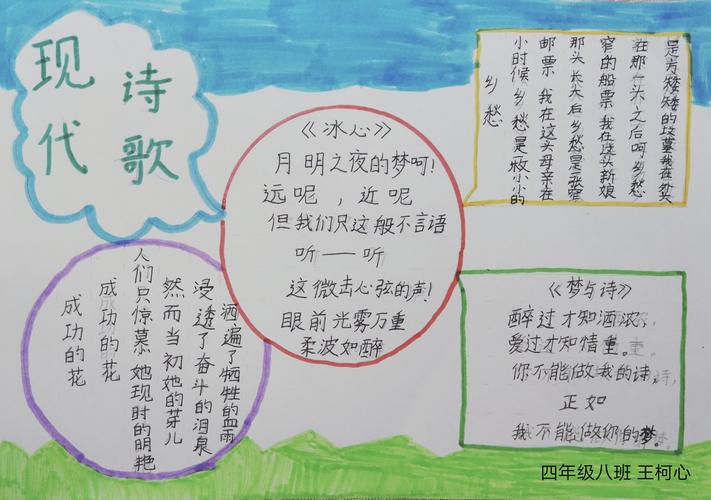 现代
诗歌
《冰心》
月明之夜的梦呵！
远呢，近呢
但我们只这般不言语
听——听
这微击心弦的声！
眼前光雾万重
柔波如醉
乡愁
小时候 乡愁是一枚小小的
邮票 我在这头母亲在
那头 长大后 乡愁是一张窄
窄的船票 我在这头新娘
在那一头 之后呵 乡愁
是方矮矮的坟墓我在外头
成功的花
成功的花
人们只惊慕她现时的明艳
然而当初她的芽儿
浸透了奋斗的泪泉
洒遍了牺牲的血雨
《梦与诗》
醉过才知酒浓、
爱过才知情重。
你不能做我的诗，
正如
我不能做你的梦。
四年级八班 王柯心